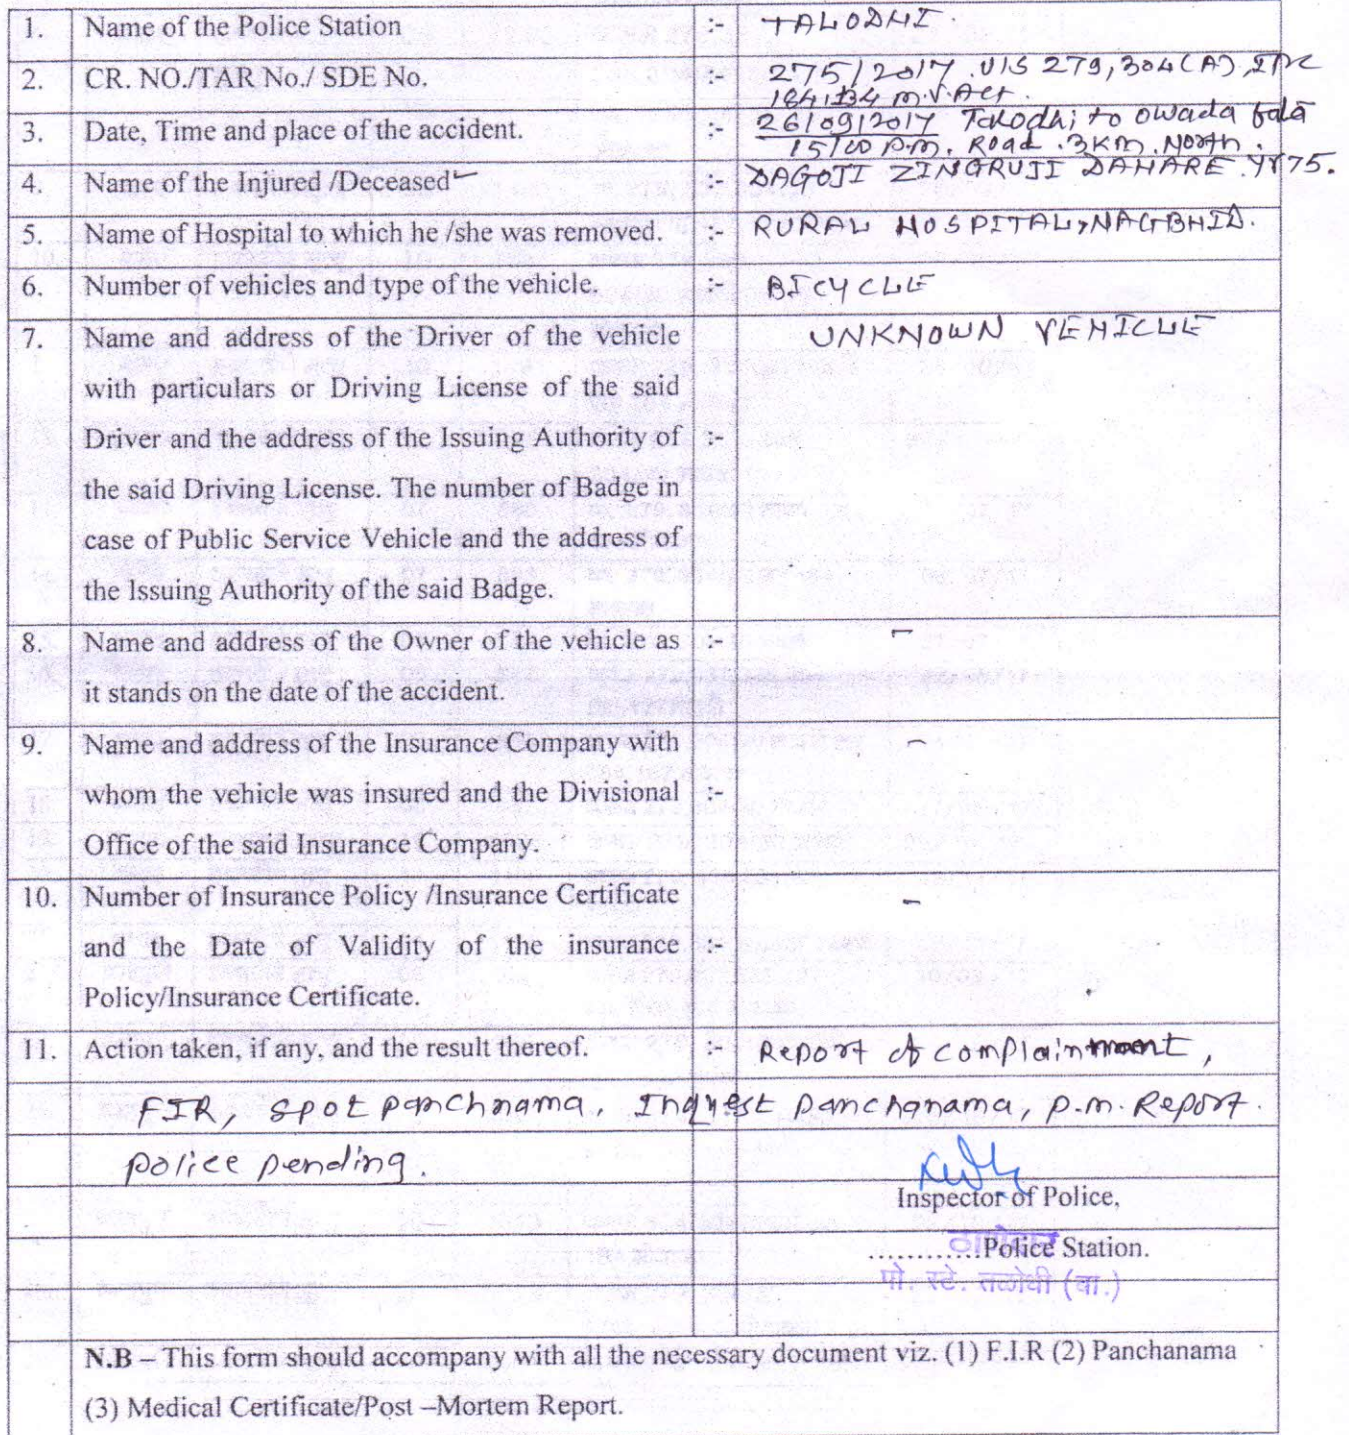 1. Name of the Police Station :- TALODHI.
2. CR. NO./TAR No./ SDE No. :- 275/2017 U/S 279, 304(A) IPC
184,134 M.V. Act.
3. Date, Time and place of the accident. :- 26/09/2017 Talodhi to owada fata
15/00 P.m. Road .3Km. North.
4. Name of the Injured /Deceased :- DAGOJI ZINGRUJI DAHARE. Yr 75.
5. Name of Hospital to which he /she was removed. :- RURAL HOSPITAL, NAGBHID.
6. Number of vehicles and type of the vehicle. :- BICYCLE
7. Name and address of the Driver of the vehicle UNKNOWN VEHICLE
with particulars or Driving License of the said
Driver and the address of the Issuing Authority of :-
the said Driving License. The number of Badge in
case of Public Service Vehicle and the address of
the Issuing Authority of the said Badge.
8. Name and address of the Owner of the vehicle as :- -
it stands on the date of the accident.
9. Name and address of the Insurance Company with -
whom the vehicle was insured and the Divisional :-
Office of the said Insurance Company.
10. Number of Insurance Policy /Insurance Certificate -
and the Date of Validity of the insurance :-
Policy/Insurance Certificate.
11. Action taken, if any, and the result thereof. :- Report of complainment,
FIR, spot panchnama, Inquest panchanama, p.m. Report.
police pending.
Inspector of Police,
.............Police Station.
पो. स्टे. तळोधी (बा.)
N.B – This form should accompany with all the necessary document viz. (1) F.I.R (2) Panchanama
(3) Medical Certificate/Post –Mortem Report.